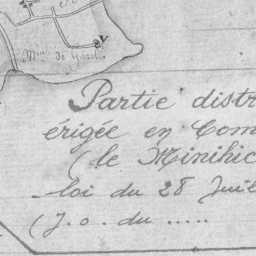 Min de Garel
Partie distr
érigée en Com
(le Minihic
loi du 28 Juil
(J. o. du .....